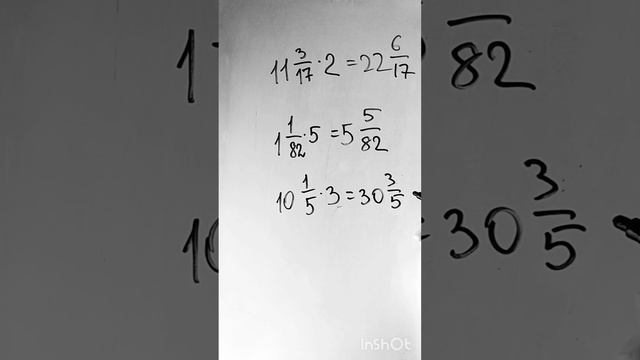 11 3/17 · 2 = 22 6/17
1 1/82 · 5 = 5 5/82
10 1/5 · 3 = 30 3/5
InShOt